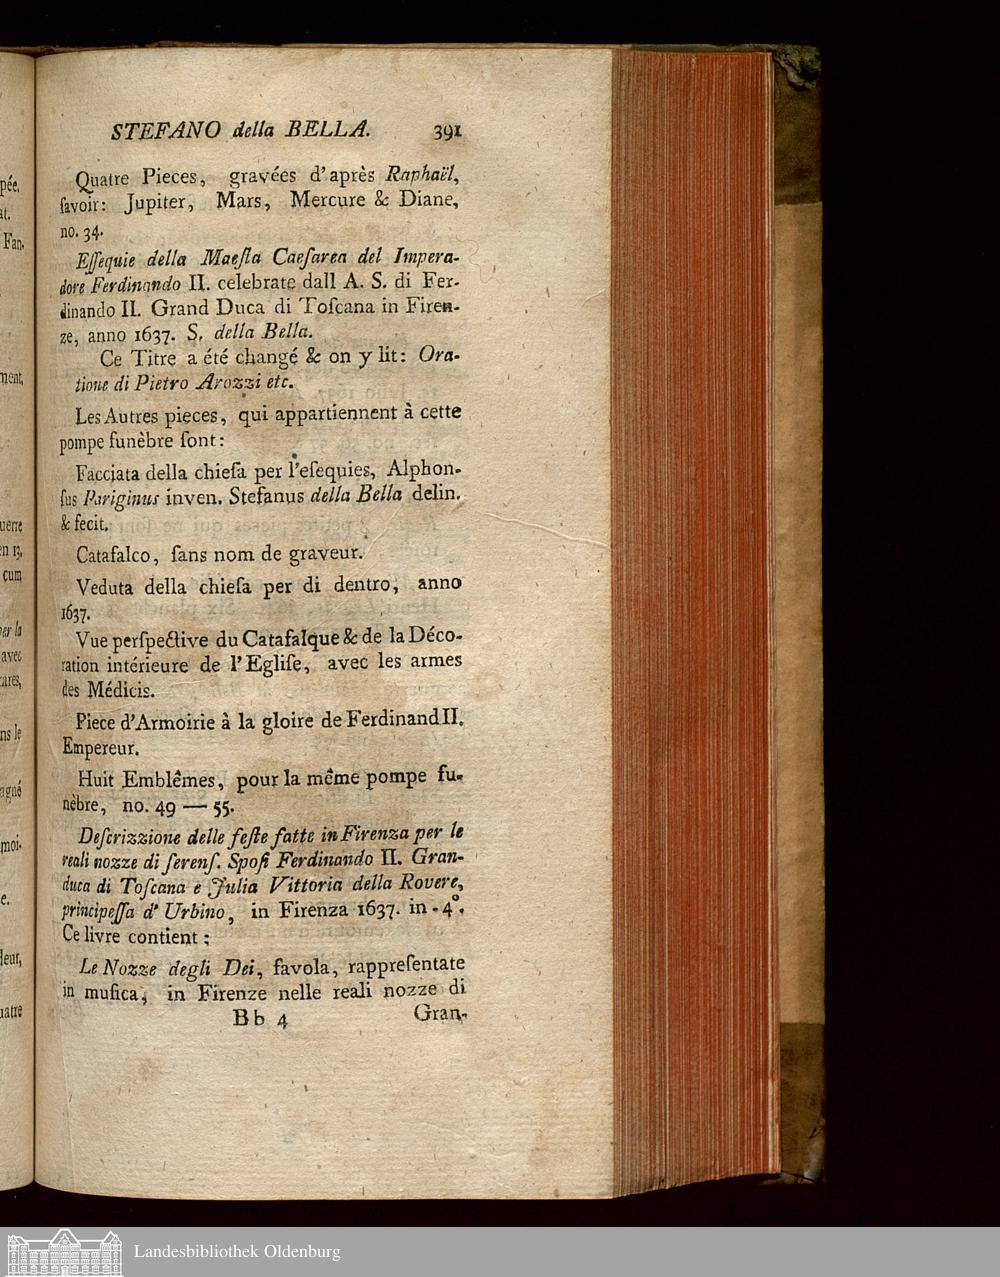 STEFANO della BELLA. 391
Quatre Pieces, gravées d'après Raphaël,
ſavoir: Jupiter, Mars, Mercure & Diane,
no. 34.
Eſſequie della Maeſta Caeſarea del Impera-
dore Ferdinando II. celebrate dall A. S. di Fer-
dinando II. Grand Duca di Toſcana in Firen-
ze, anno 1637. S. della Bella.
Ce Titre a été changé & on y lit: Ora-
tione di Pietro Arozzi etc.
Les Autres pieces, qui appartiennent à cette
pompe funèbre ſont:
Facciata della chieſa per l'eſequies, Alphon-
ſus Pariginus inven. Stefanus della Bella delin.
& fecit.
Catafalco, ſans nom de graveur.
Veduta della chieſa per di dentro, anno
1637.
Vue perſpective du Catafalque & de la Déco-
ration intérieure de l'Egliſe, avec les armes
des Médicis.
Piece d'Armoirie à la gloire de Ferdinand II.
Empereur.
Huit Emblêmes, pour la même pompe fu-
nèbre, no. 49 — 55.
Deſcrizzione delle feſte fatte in Firenza per le
reali nozze di ſerenſ. Spoſi Ferdinando II. Gran-
duca di Toſcana e Julia Vittoria della Rovere,
principeſſa d' Urbino, in Firenza 1637. in-4°.
Ce livre contient:
Le Nozze degli Dei, favola, rappreſentate
in muſica, in Firenze nelle reali nozze di
Bb 4 Gran-
pée.
at.
Fan.
ment,
uerre
en 13,
cum
per la
avec
ns le
agné
moi-
e.
leur,
uatre
Landesbibliothek Oldenburg